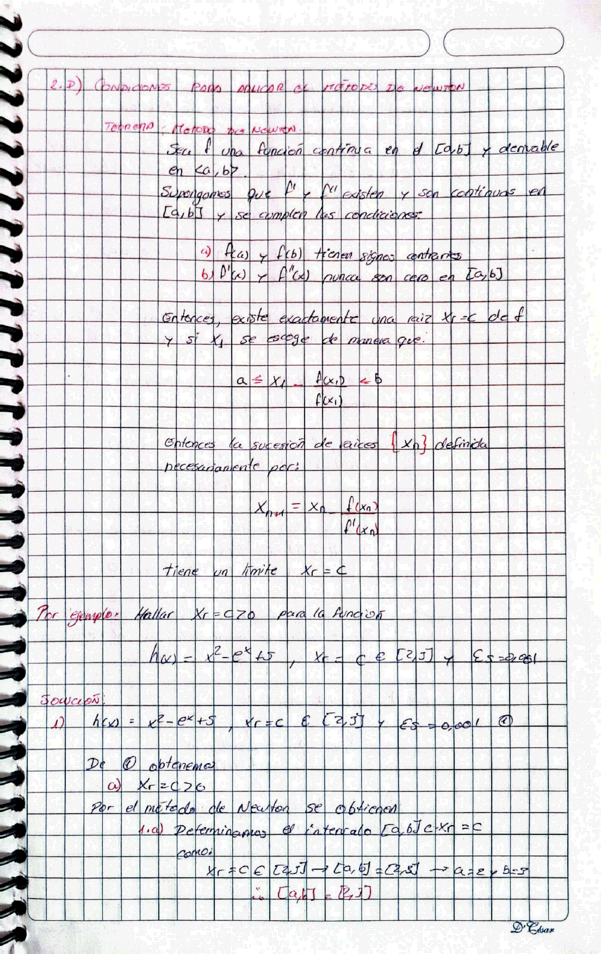 2.D) CONDICIONES PARA APLICAR EL MÉTODO DE NEWTON
TEOREMA: MÉTODO DE NEWTON
Sea f una función continua en el [a,b] y derivable
en <a,b>.
Supongamos que f' y f'' existen y son continuas en
[a,b] y se cumplen las condiciones:
a) f(a) y f(b) tienen signos contrarios
b) f'(x) y f''(x) nunca son cero en [a,b]
Entonces, existe exactamente una raiz Xr=c de f
y si X1 se escoge de manera que:
a ≤ X1 - f(X1)/f(X1) ≤ b
Entonces la sucesión de raices {Xn} definida
necesariamente por:
Xn+1 = Xn - f(Xn)/f'(Xn)
tiene un límite Xr = C
Por ejemplo: Hallar Xr=C>0 para la función
h(x) = x²-eˣ+5, Xr = C ∈ [2,3] y Es=0,001
SOLUCIÓN:
1) h(x) = x²-eˣ+5, Xr=C ∈ [2,3] y Es=0,001 ①
De ① obtenemos
a) Xr=C>0
Por el método de Newton se obtienen
1.a) Determinamos el intervalo [a,b] c Xr=C
como:
Xr=C ∈ [2,3] → [a,b]=[2,3] → a=2 y b=3
∴ [a,b] = [2,3]
D'César